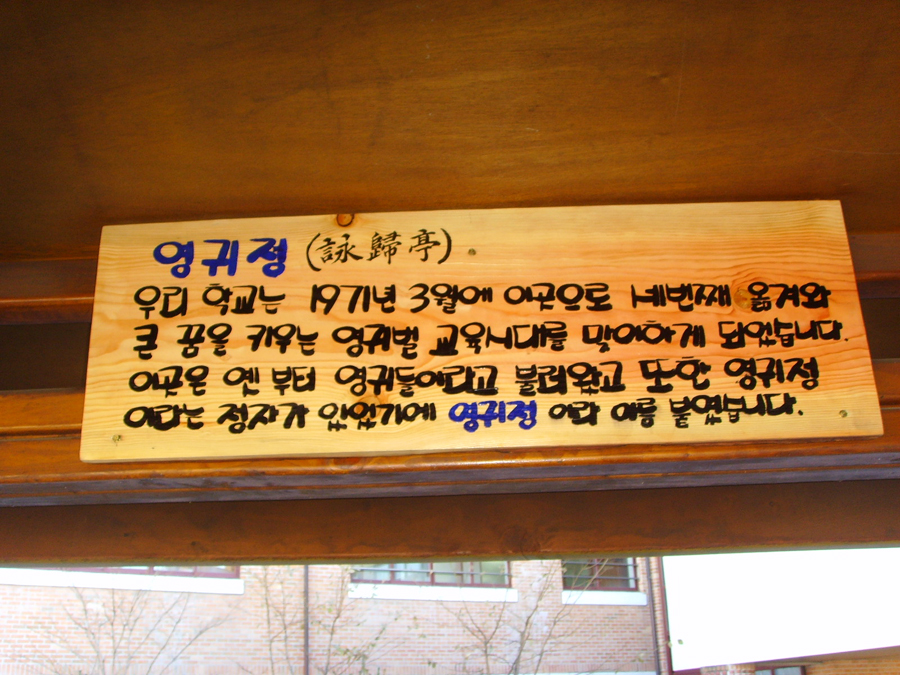 영귀정 (詠歸亭)
우리 학교는 1971년 3월에 이곳으로 네번째 옮겨와
큰 꿈을 키우는 영귀벌 교육시대를 맞이하게 되었습니다.
이곳은 옛 부터 영귀들이라고 불러왔고 또한 영귀정
이라는 정자가 있었기에 영귀정 이라 이름 붙였습니다.